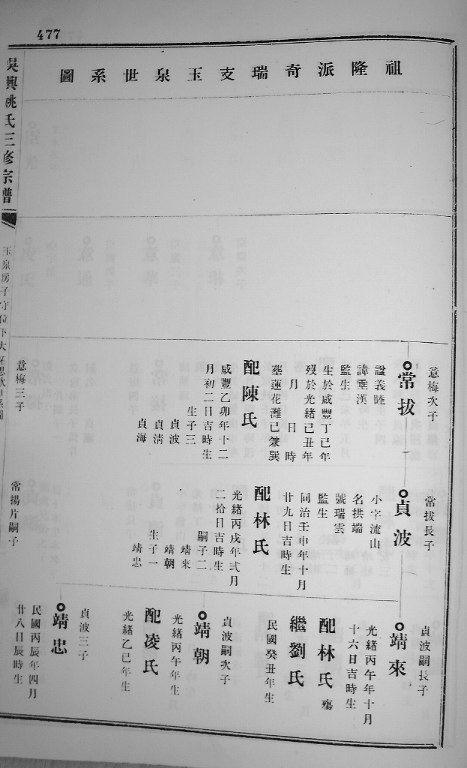 477
祖隆派奇瑞支玉泉世系圖
吳興姚氏三修宗譜
意梅次子
常拔
諡義睦
諱垂漢
監生
生於咸豐丁巳年
歿於光緒己丑年
月 日 時
葬蓮花灘己兼巽
配陳氏
咸豐乙卯年十二
月初二日吉時生
生子三
貞波
貞清
貞海
意梅三子
常拔長子
貞波
小字流山
名拱端
號瑞雲
監生
同治壬申年十月
廿九日吉時生
配林氏
光緒丙戌年弍月
二拾日吉時生
嗣子二
靖來
靖朝
生子一
靖忠
常揚片嗣子
貞波嗣長子
靖來
光緒丙午年十月
十六日吉時生
配林氏
繼劉氏
民國癸丑年生
貞波嗣次子
靖朝
光緒丙午年生
配凌氏
光緒乙巳年生
貞波三子
靖忠
民國丙辰年四月
廿八日辰時生